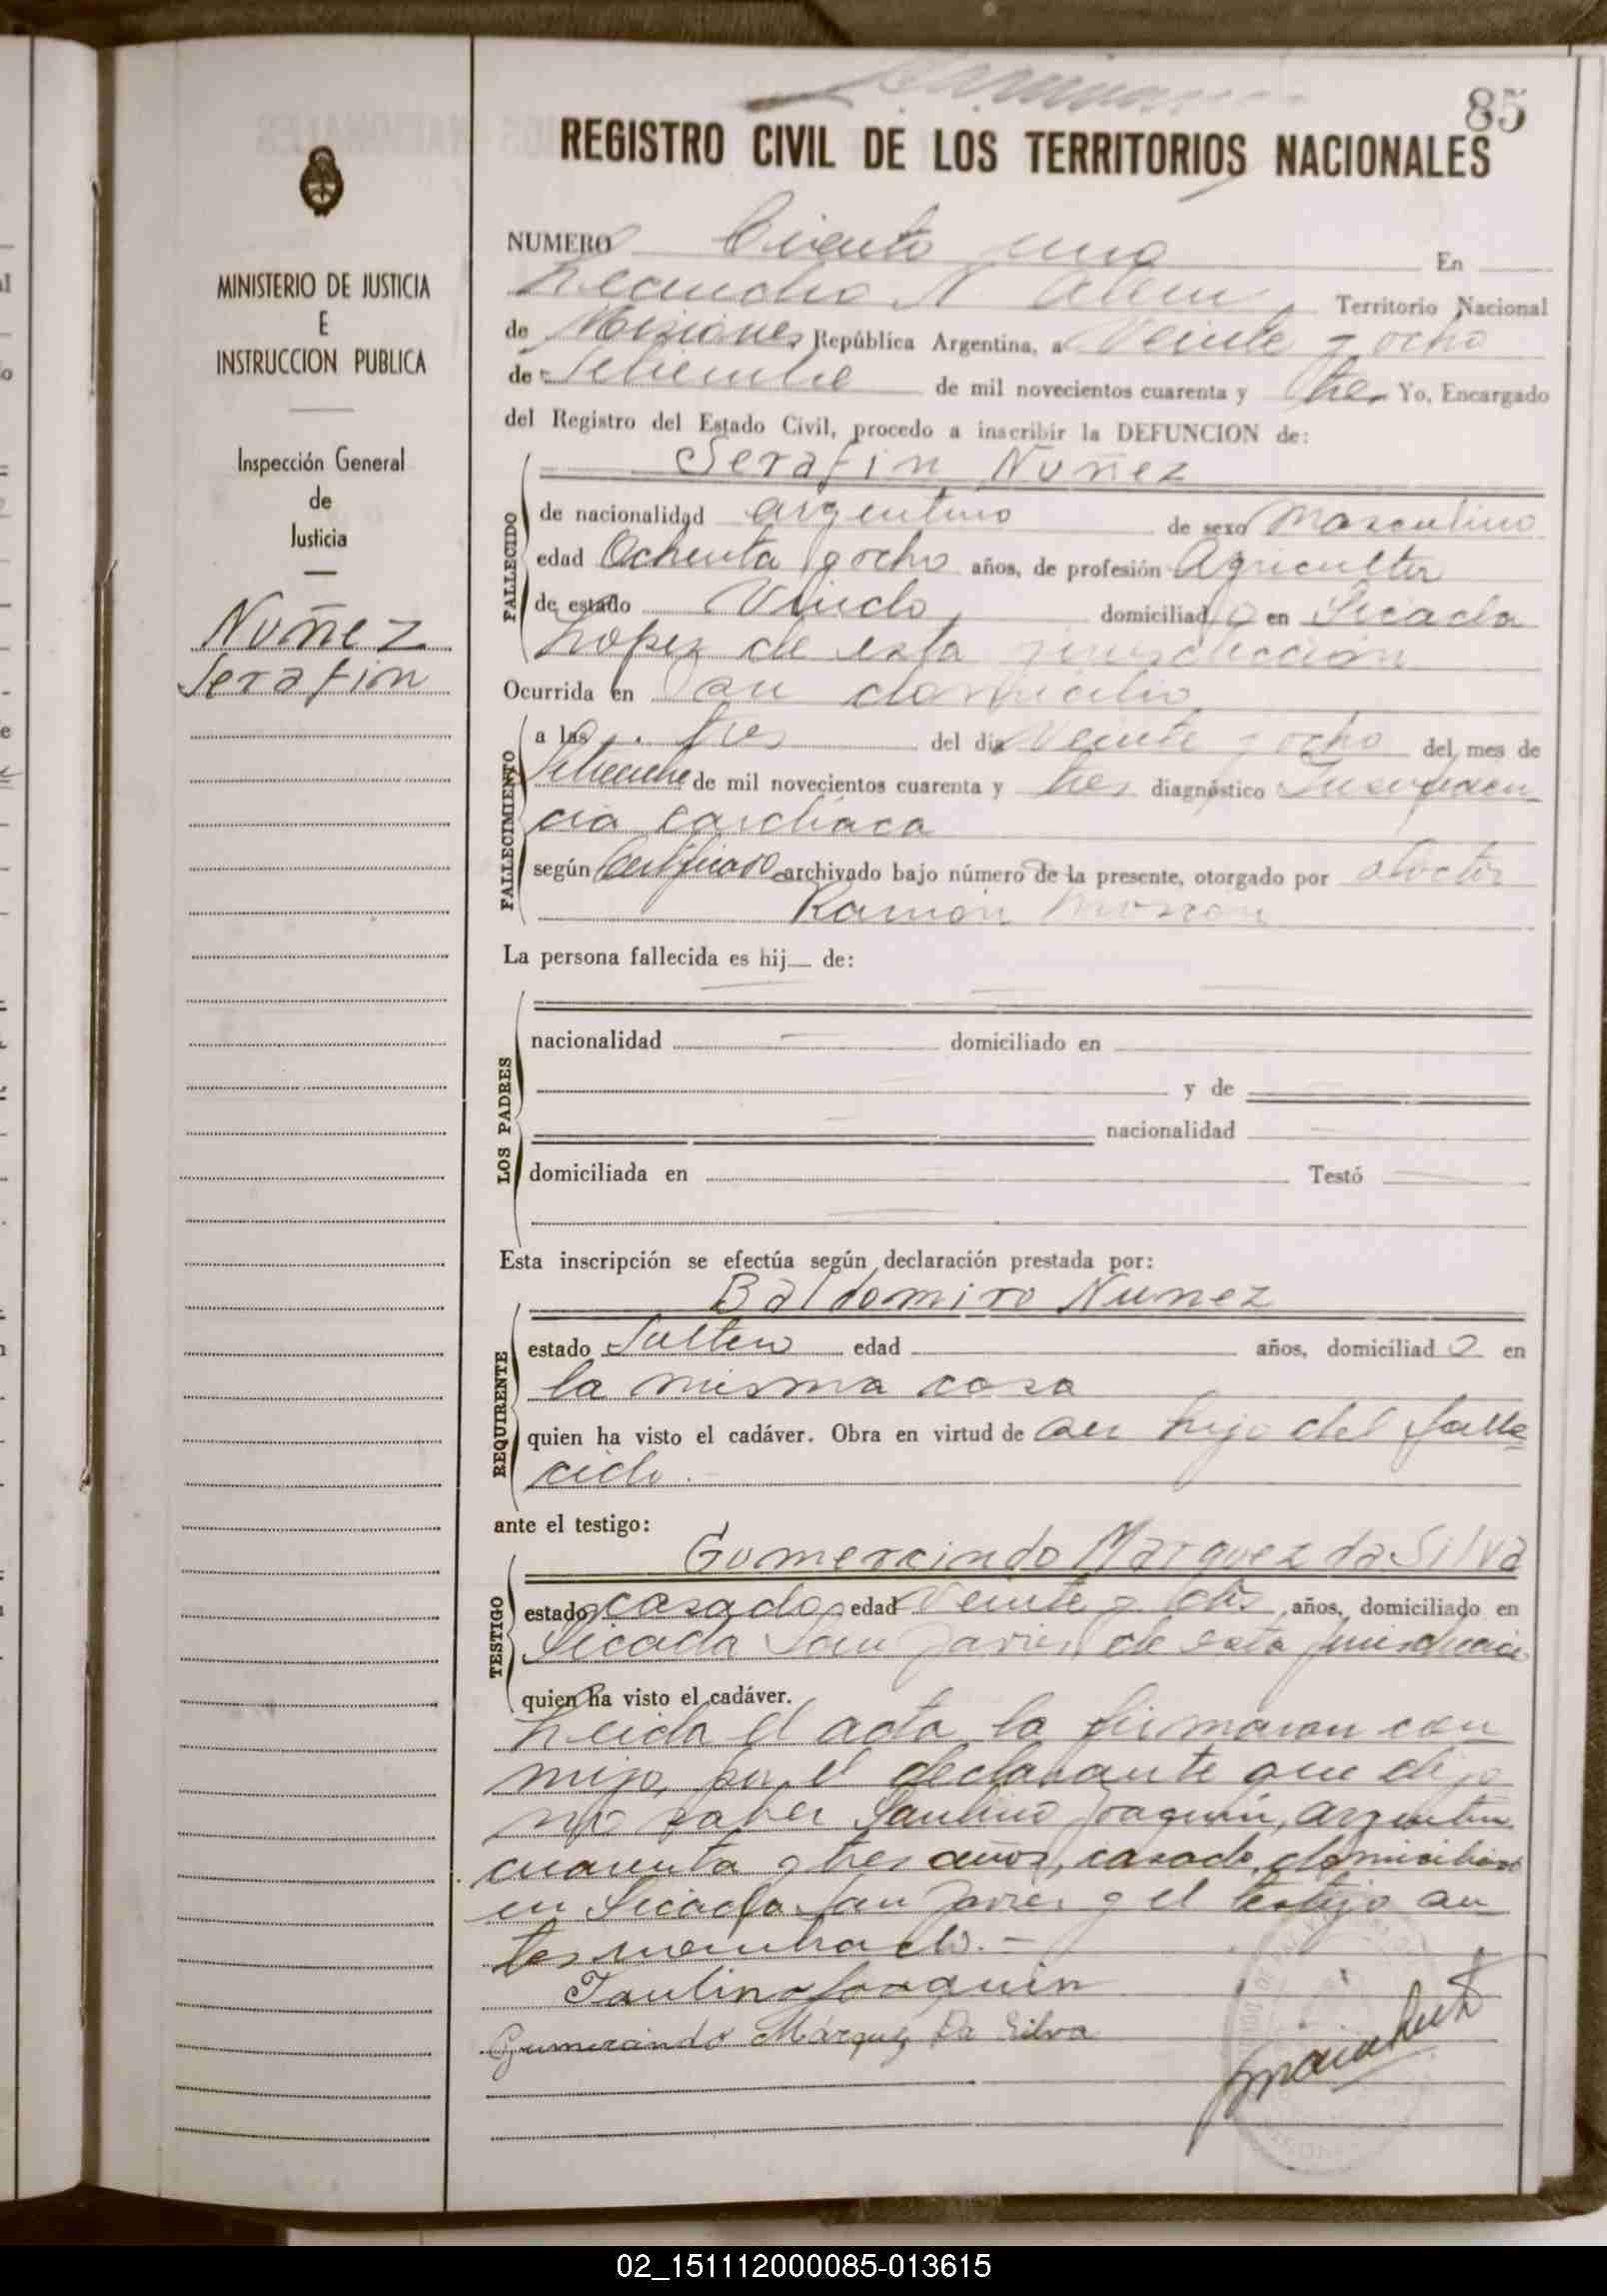 85
REGISTRO CIVIL DE LOS TERRITORIOS NACIONALES
MINISTERIO DE JUSTICIA
E
INSTRUCCION PUBLICA
Inspección General
de
Justicia
Nuñez
Serafin
NUMERO Ciento uno En
Leandro N Alem, Territorio Nacional
de Misiones República Argentina, a Veinte y ocho
de Setiembre de mil novecientos cuarenta y tres Yo, Encargado
del Registro del Estado Civil, procedo a inscribir la DEFUNCION de:
Serafin Nuñez
FALLECIDO
de nacionalidad argentino de sexo Masculino
edad Ochenta y ocho años, de profesión Agricultor
de estado Viudo domiciliado en Picada
Lopez de esta jurisdiccion
Ocurrida en su domicilio
FALLECIMIENTO
a las tres del dia Veinte y ocho del mes de
Setiembre de mil novecientos cuarenta y tres diagnóstico Insuficien
cia cardiaca
según Certificado archivado bajo número de la presente, otorgado por doctor
Ramon
La persona fallecida es hij de:
LOS PADRES
nacionalidad domiciliado en
y de
nacionalidad
domiciliada en Testó
Esta inscripción se efectúa según declaración prestada por:
Baldomiro Nunez
REQUIRENTE
estado Soltero edad años, domiciliado en
la misma casa
quien ha visto el cadáver. Obra en virtud de ser hijo del falle
cido.-
ante el testigo:
Gumercindo Marquez da Silva
TESTIGO
estado casado, edad Veinte y dos años, domiciliado en
Picada San Javier de esta jurisdiccion
quien ha visto el cadáver.
Leida el acta la firmaron con
migo, por el declarante que dijo
no saber Paulino Joaquin, argentino
cuarenta y tres años, casado, domiciliado
en Picada San Javier y el testigo an
tes nombrado.-
Paulino Joaquin
Gumercindo Márquez Da Silva
02_151112000085-013615